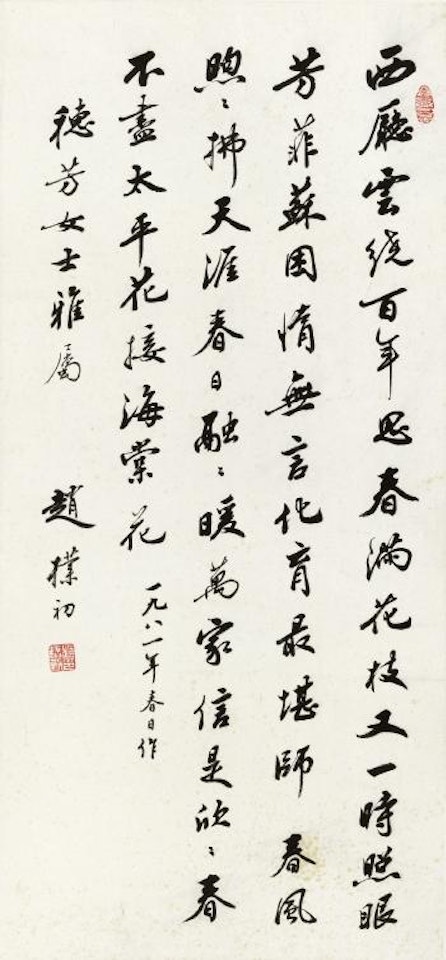 西廳雲繞百年思春滿花枝又一時照眼
芳菲蘇困惰無言化育最堪師 春風
煦〻拂天涯春日融〻暖萬家信是欣〻春
不盡太平花接海棠花 一九八一年春日作
穗芳女士雅屬 趙樸初